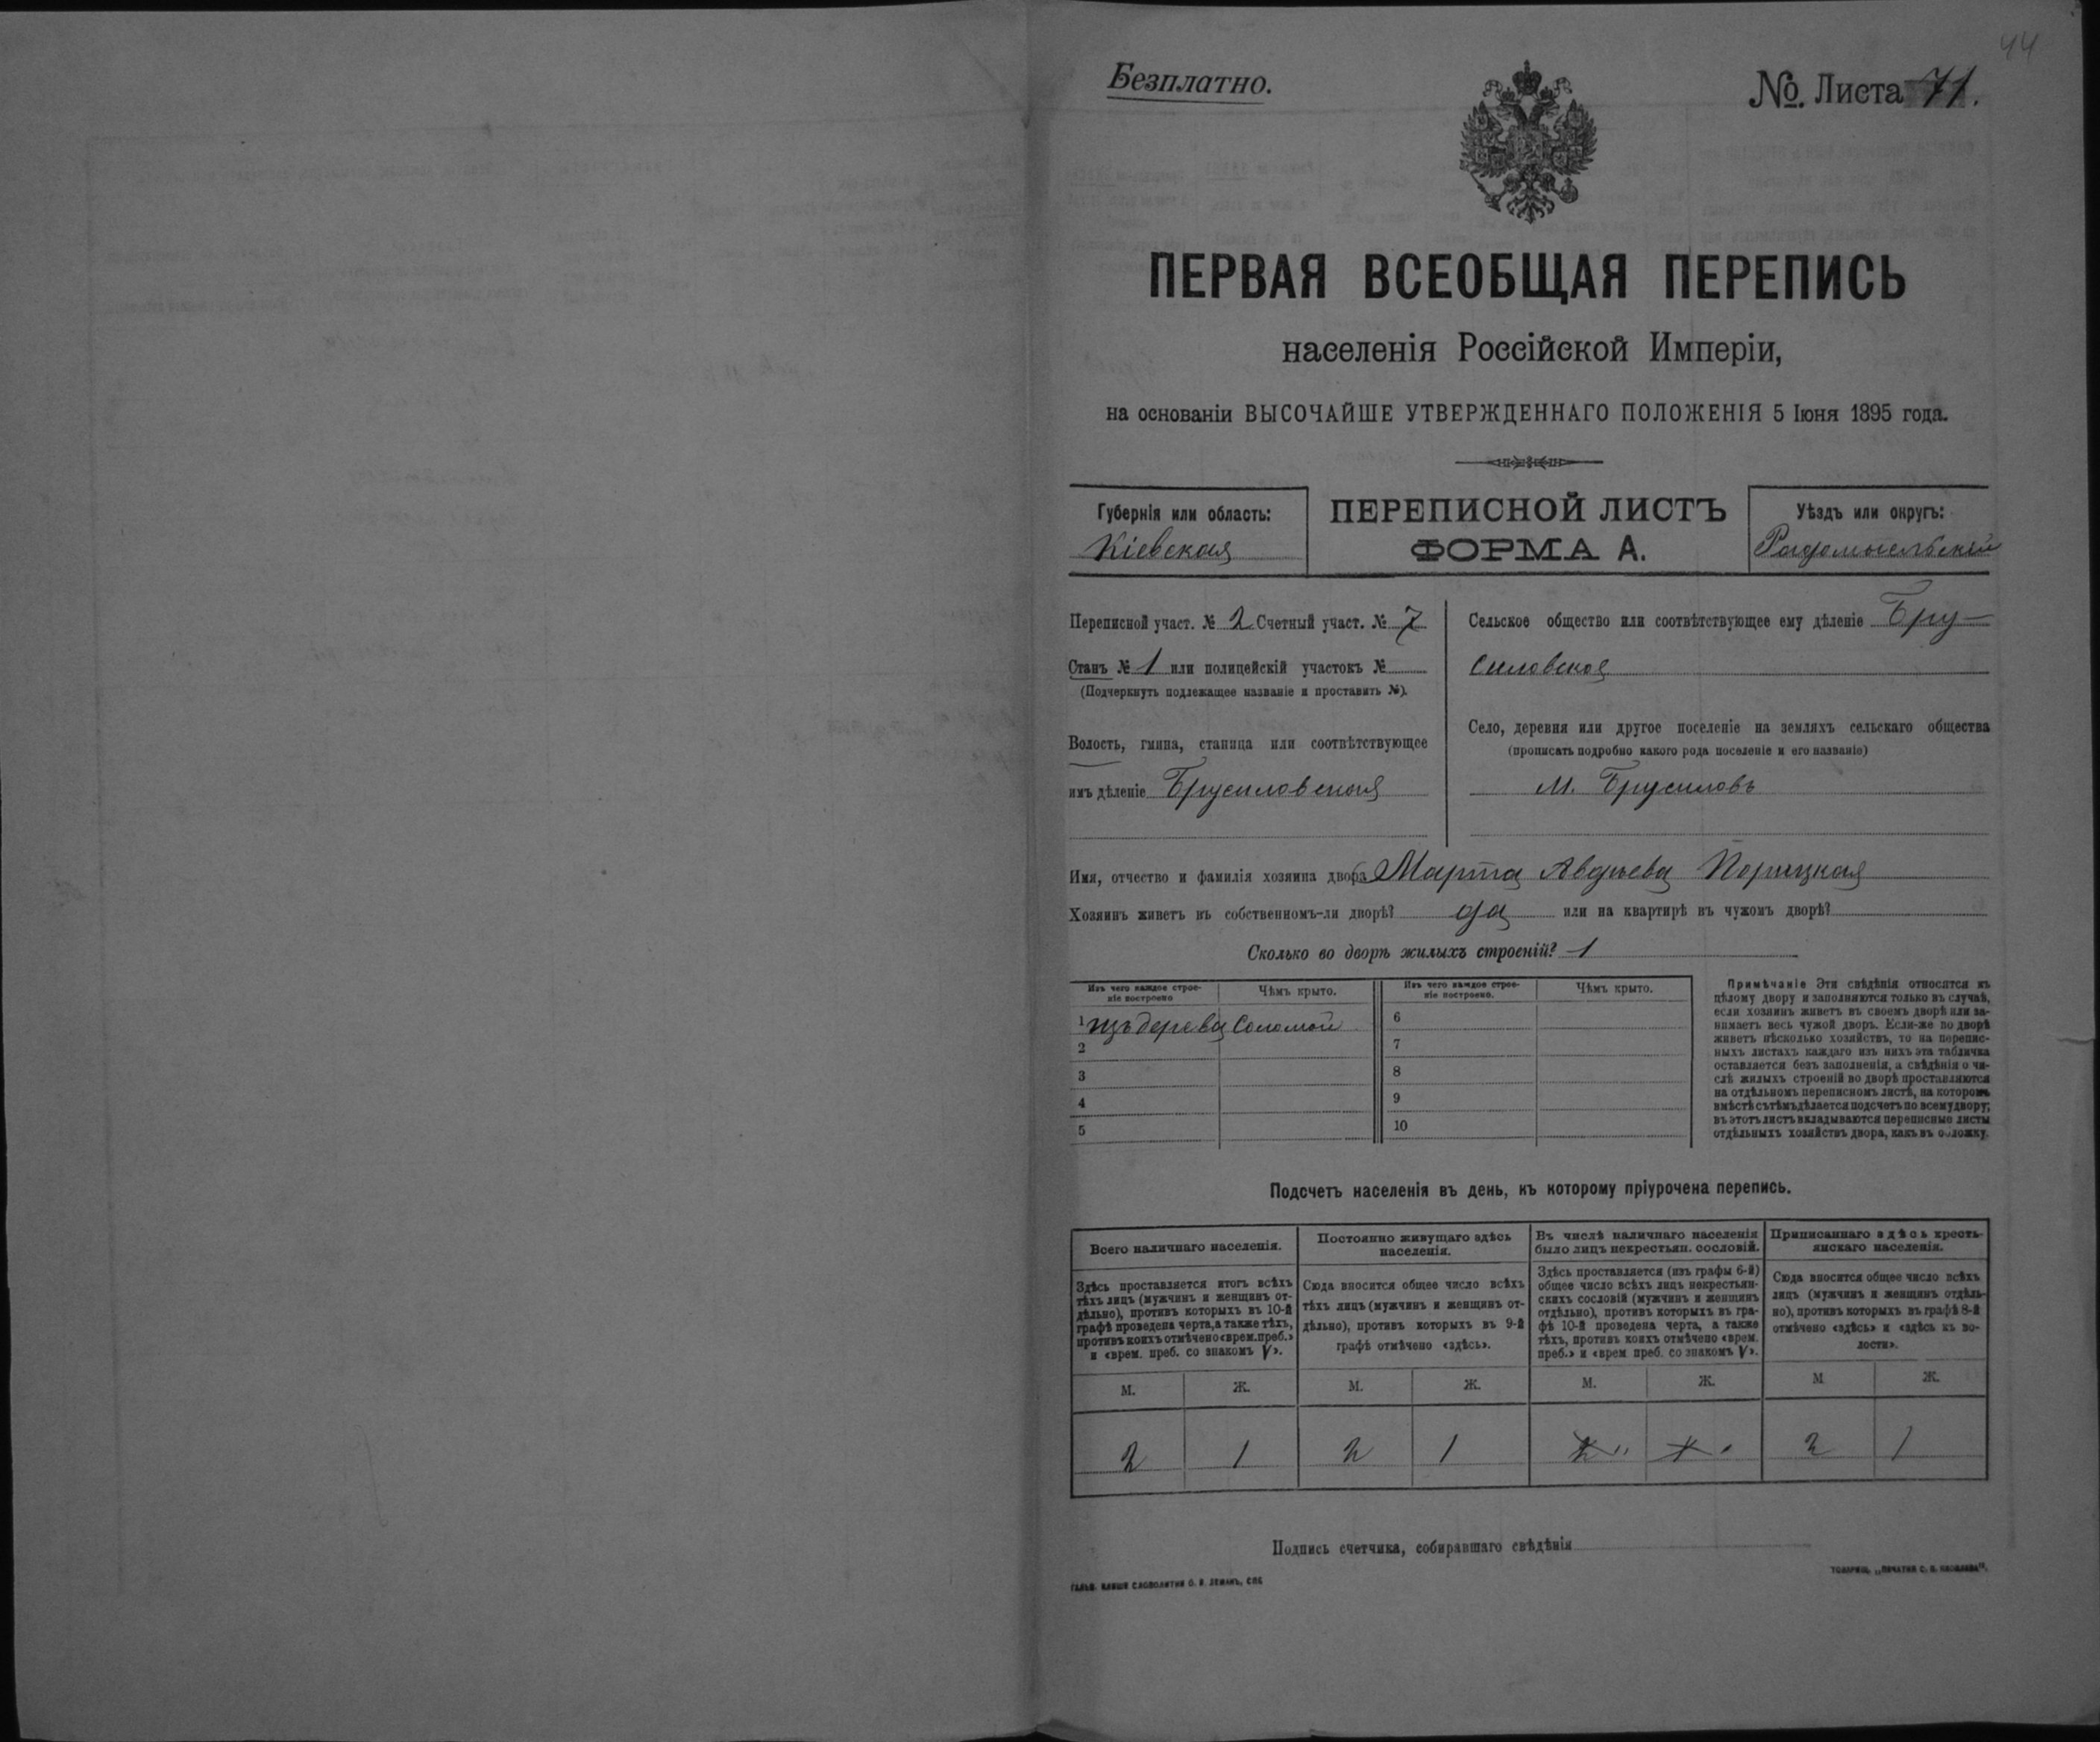 44
Безплатно.
№. Листа 71.
ПЕРВАЯ ВСЕОБЩАЯ ПЕРЕПИСЬ
населенія Россійской Имперіи,
на основаніи ВЫСОЧАЙШЕ УТВЕРЖДЕННАГО ПОЛОЖЕНІЯ 5 Іюня 1895 года.
Губернія или область:
Кіевская
ПЕРЕПИСНОЙ ЛИСТЪ
ФОРМА А.
Уѣздъ или округъ:
Радомысльскій
Переписной участ. № 2 Счетный участ. № 7
Станъ № 1 или полицейскій участокъ №
(Подчеркнуть подлежащее названіе и проставить №).
Волость, гмина, станица или соотвѣтствующее
имъ дѣленіе Брусиловская
Сельское общество или соотвѣтствующее ему дѣленіе Бру-
силовское
Село, деревня или другое поселеніе на земляхъ сельскаго общества
(прописать подробно какого рода поселеніе и его названіе)
м. Брусиловъ
Имя, отчество и фамилія хозяина двора Марта Авдѣева Порицкая
Хозяинъ живетъ въ собственномъ-ли дворѣ? да или на квартирѣ въ чужомъ дворѣ?
Сколько во дворѣ жилыхъ строеній? 1
Изъ чего каждое строе-
ніе построено
Чѣмъ крыто.
Изъ чего каждое строе-
ніе построено.
Чѣмъ крыто.
1 изъ дерева Соломой 6
2 7
3 8
4 9
5 10
Примѣчаніе Эти свѣдѣнія относятся къ
цѣлому двору и заполняются только въ случаѣ,
если хозяинъ живетъ въ своемъ дворѣ или за-
нимаетъ весь чужой дворъ. Если-же во дворѣ
живетъ нѣсколько хозяйствъ, то на перепис-
ныхъ листахъ каждаго изъ нихъ эта табличка
оставляется безъ заполненія, а свѣдѣнія о чи-
слѣ жилыхъ строеній во дворѣ проставляются
на отдѣльномъ переписномъ листѣ, на которомъ
вмѣстѣ съ тѣмъ дѣлается подсчетъ по всему двору;
въ этотъ листъ вкладываются переписные листы
отдѣльныхъ хозяйствъ двора, какъ въ обложку.
Подсчетъ населенія въ день, къ которому пріурочена перепись.
Всего наличнаго населенія.
Здѣсь проставляется итогъ всѣхъ
тѣхъ лицъ (мужчинъ и женщинъ от-
дѣльно), противъ которыхъ въ 10-й
графѣ проведена черта, а также тѣхъ,
противъ коихъ отмѣчено «врем. преб.»
и «врем. преб. со знакомъ V».
Постоянно живущаго здѣсь
населенія.
Сюда вносится общее число всѣхъ
тѣхъ лицъ (мужчинъ и женщинъ от-
дѣльно), противъ которыхъ въ 9-й
графѣ отмѣчено «здѣсь».
Въ числѣ наличнаго населенія
было лицъ некрестьян. сословій.
Здѣсь проставляется (изъ графы 6-й)
общее число всѣхъ лицъ некрестьян-
скихъ сословій (мужчинъ и женщинъ
отдѣльно), противъ которыхъ въ гра-
фѣ 10-й проведена черта, а также
тѣхъ, противъ коихъ отмѣчено «врем.
преб.» и «врем преб. со знакомъ V».
Приписаннаго здѣсь кресть-
янскаго населенія.
Сюда вносится общее число всѣхъ
лицъ (мужчинъ и женщинъ отдѣль-
но), противъ которыхъ въ графѣ 8-й
отмѣчено «здѣсь» и «здѣсь въ во-
лости».
М. Ж. М. Ж. М. Ж. М Ж.
2 1 2 1 2 " 1 " 2 1
Подпись счетчика, собиравшаго свѣдѣнія
ГАЛЬВ. КЛИШЕ СЛОВОЛИТНИ О. И. ЛЕМАНЪ, СПБ
ТОВАРИЩ. „ПЕЧАТНЯ С. П. ЯКОВЛЕВА".